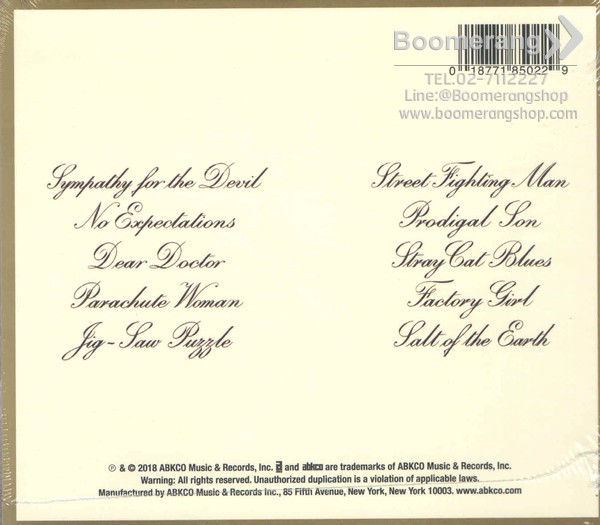 Boomerang
0 18771 85022 9
TEL.02-7112227
Line:@Boomerangshop
www.boomerangshop.com
Sympathy for the Devil
No Expectations
Dear Doctor
Parachute Woman
Jig-Saw Puzzle
Street Fighting Man
Prodigal Son
Stray Cat Blues
Factory Girl
Salt of the Earth
℗ & © 2018 ABKCO Music & Records, Inc. and abkco are trademarks of ABKCO Music & Records, Inc.
Warning: All rights reserved. Unauthorized duplication is a violation of applicable laws.
Manufactured by ABKCO Music & Records Inc., 85 Fifth Avenue, New York, New York 10003. www.abkco.com